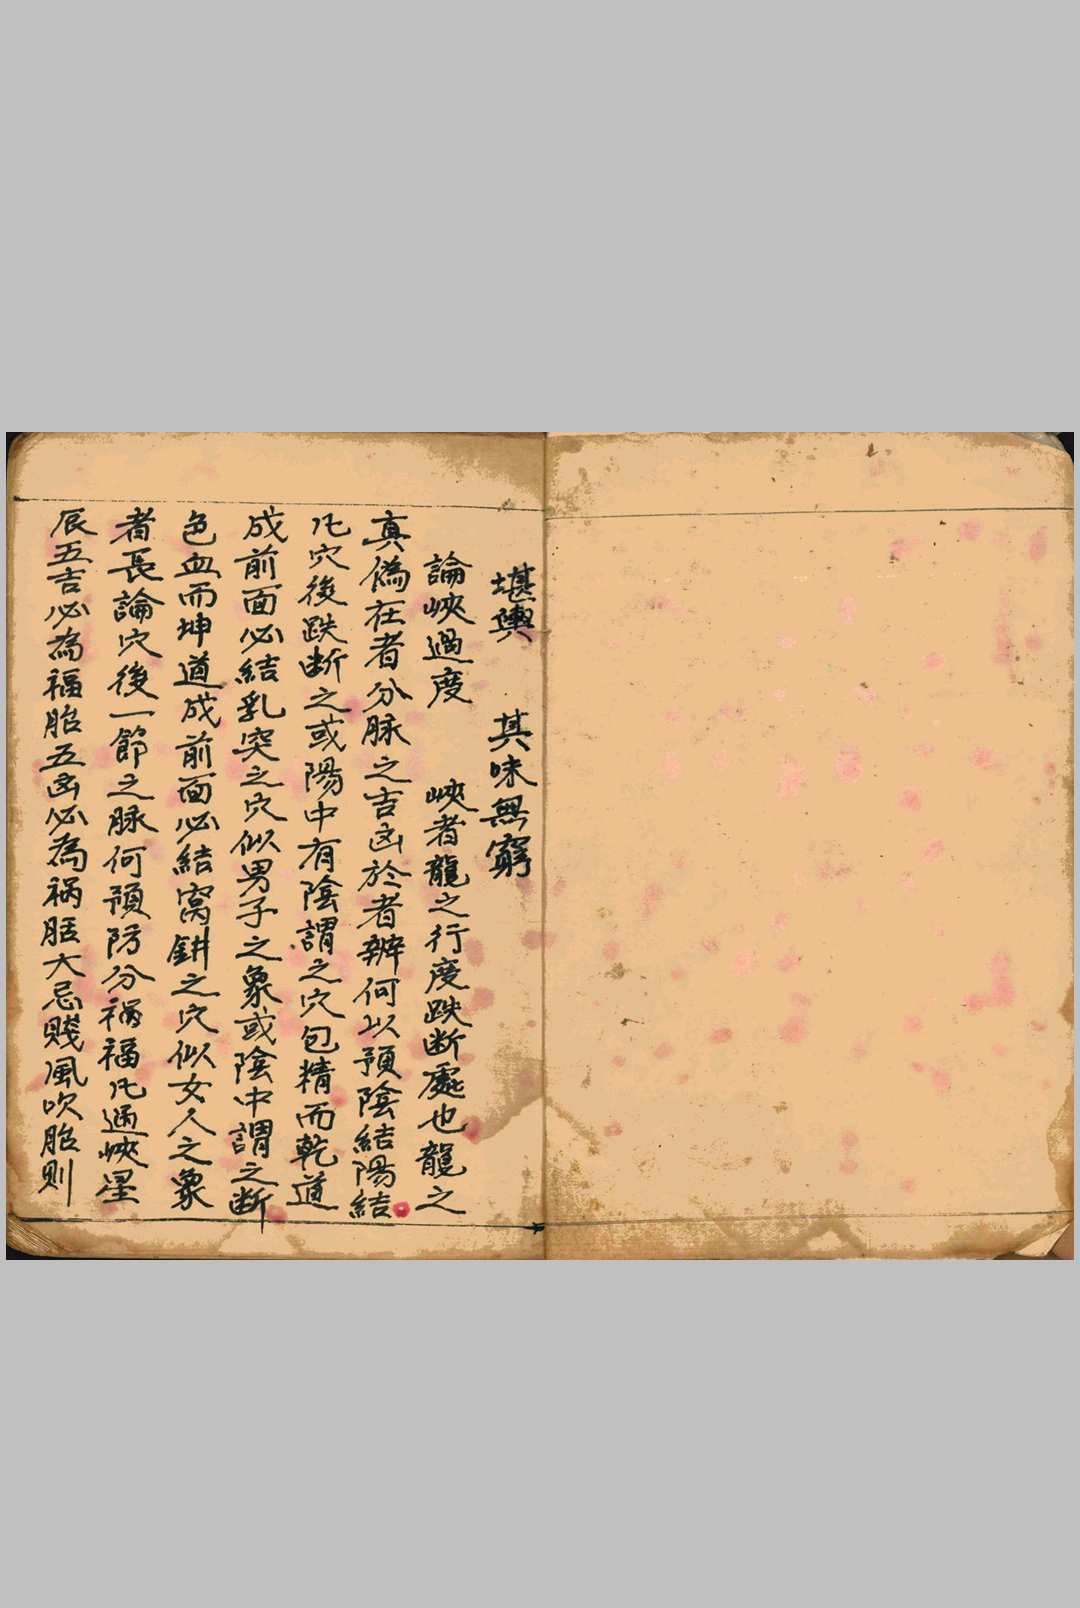 堪輿　其味無窮
論峽過度　峽者龍之行度跌断處也龍之
真偽在者分脉之吉凶於者辨何以預陰結陽結
凡穴後跌断之或陽中有陰謂之穴包精而乾道
成前面必結乳突之穴似男子之象或陰中謂之断
色血而坤道成前面必結窩鉗之穴似女人之象
者長論穴後一節之脉何預防分禍福凡過峽星
辰五吉必為福胎五凶必為禍胚大忌賤風吹胎则